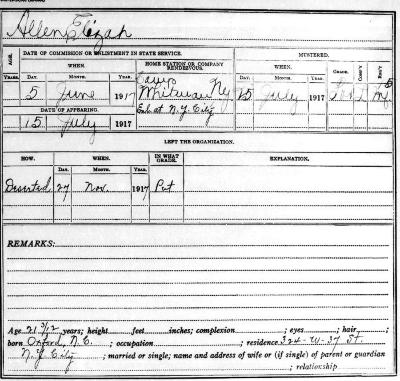 Allen, Elizah
AGE.
DATE OF COMMISSION OR ENLISTMENT IN STATE SERVICE.
MUSTERED.
WHEN.
HOME STATION OR COMPANY RENDEZVOUS.
WHEN.
GRADE.
COMP'Y
REG'T
YEARS.
DAY.
MONTH.
YEAR.
DAY.
MONTH.
YEAR.
5 June 1917
Camp Whitman Ny
25 July 1917
Inf
DATE OF APPEARING.
Enl at N.Y. City
15 July 1917
LEFT THE ORGANIZATION.
HOW.
WHEN.
IN WHAT GRADE.
EXPLANATION.
DAY.
MONTH.
YEAR.
Deserted 27 Nov. 1917 Pvt
REMARKS:
Age 21 3/12 years; height feet inches; complexion ; eyes ; hair ;
born Oxford, N.C. ; occupation ; residence 324-W-37 St.
N.Y. City ; married or single; name and address of wife or (if single) of parent or guardian
; relationship